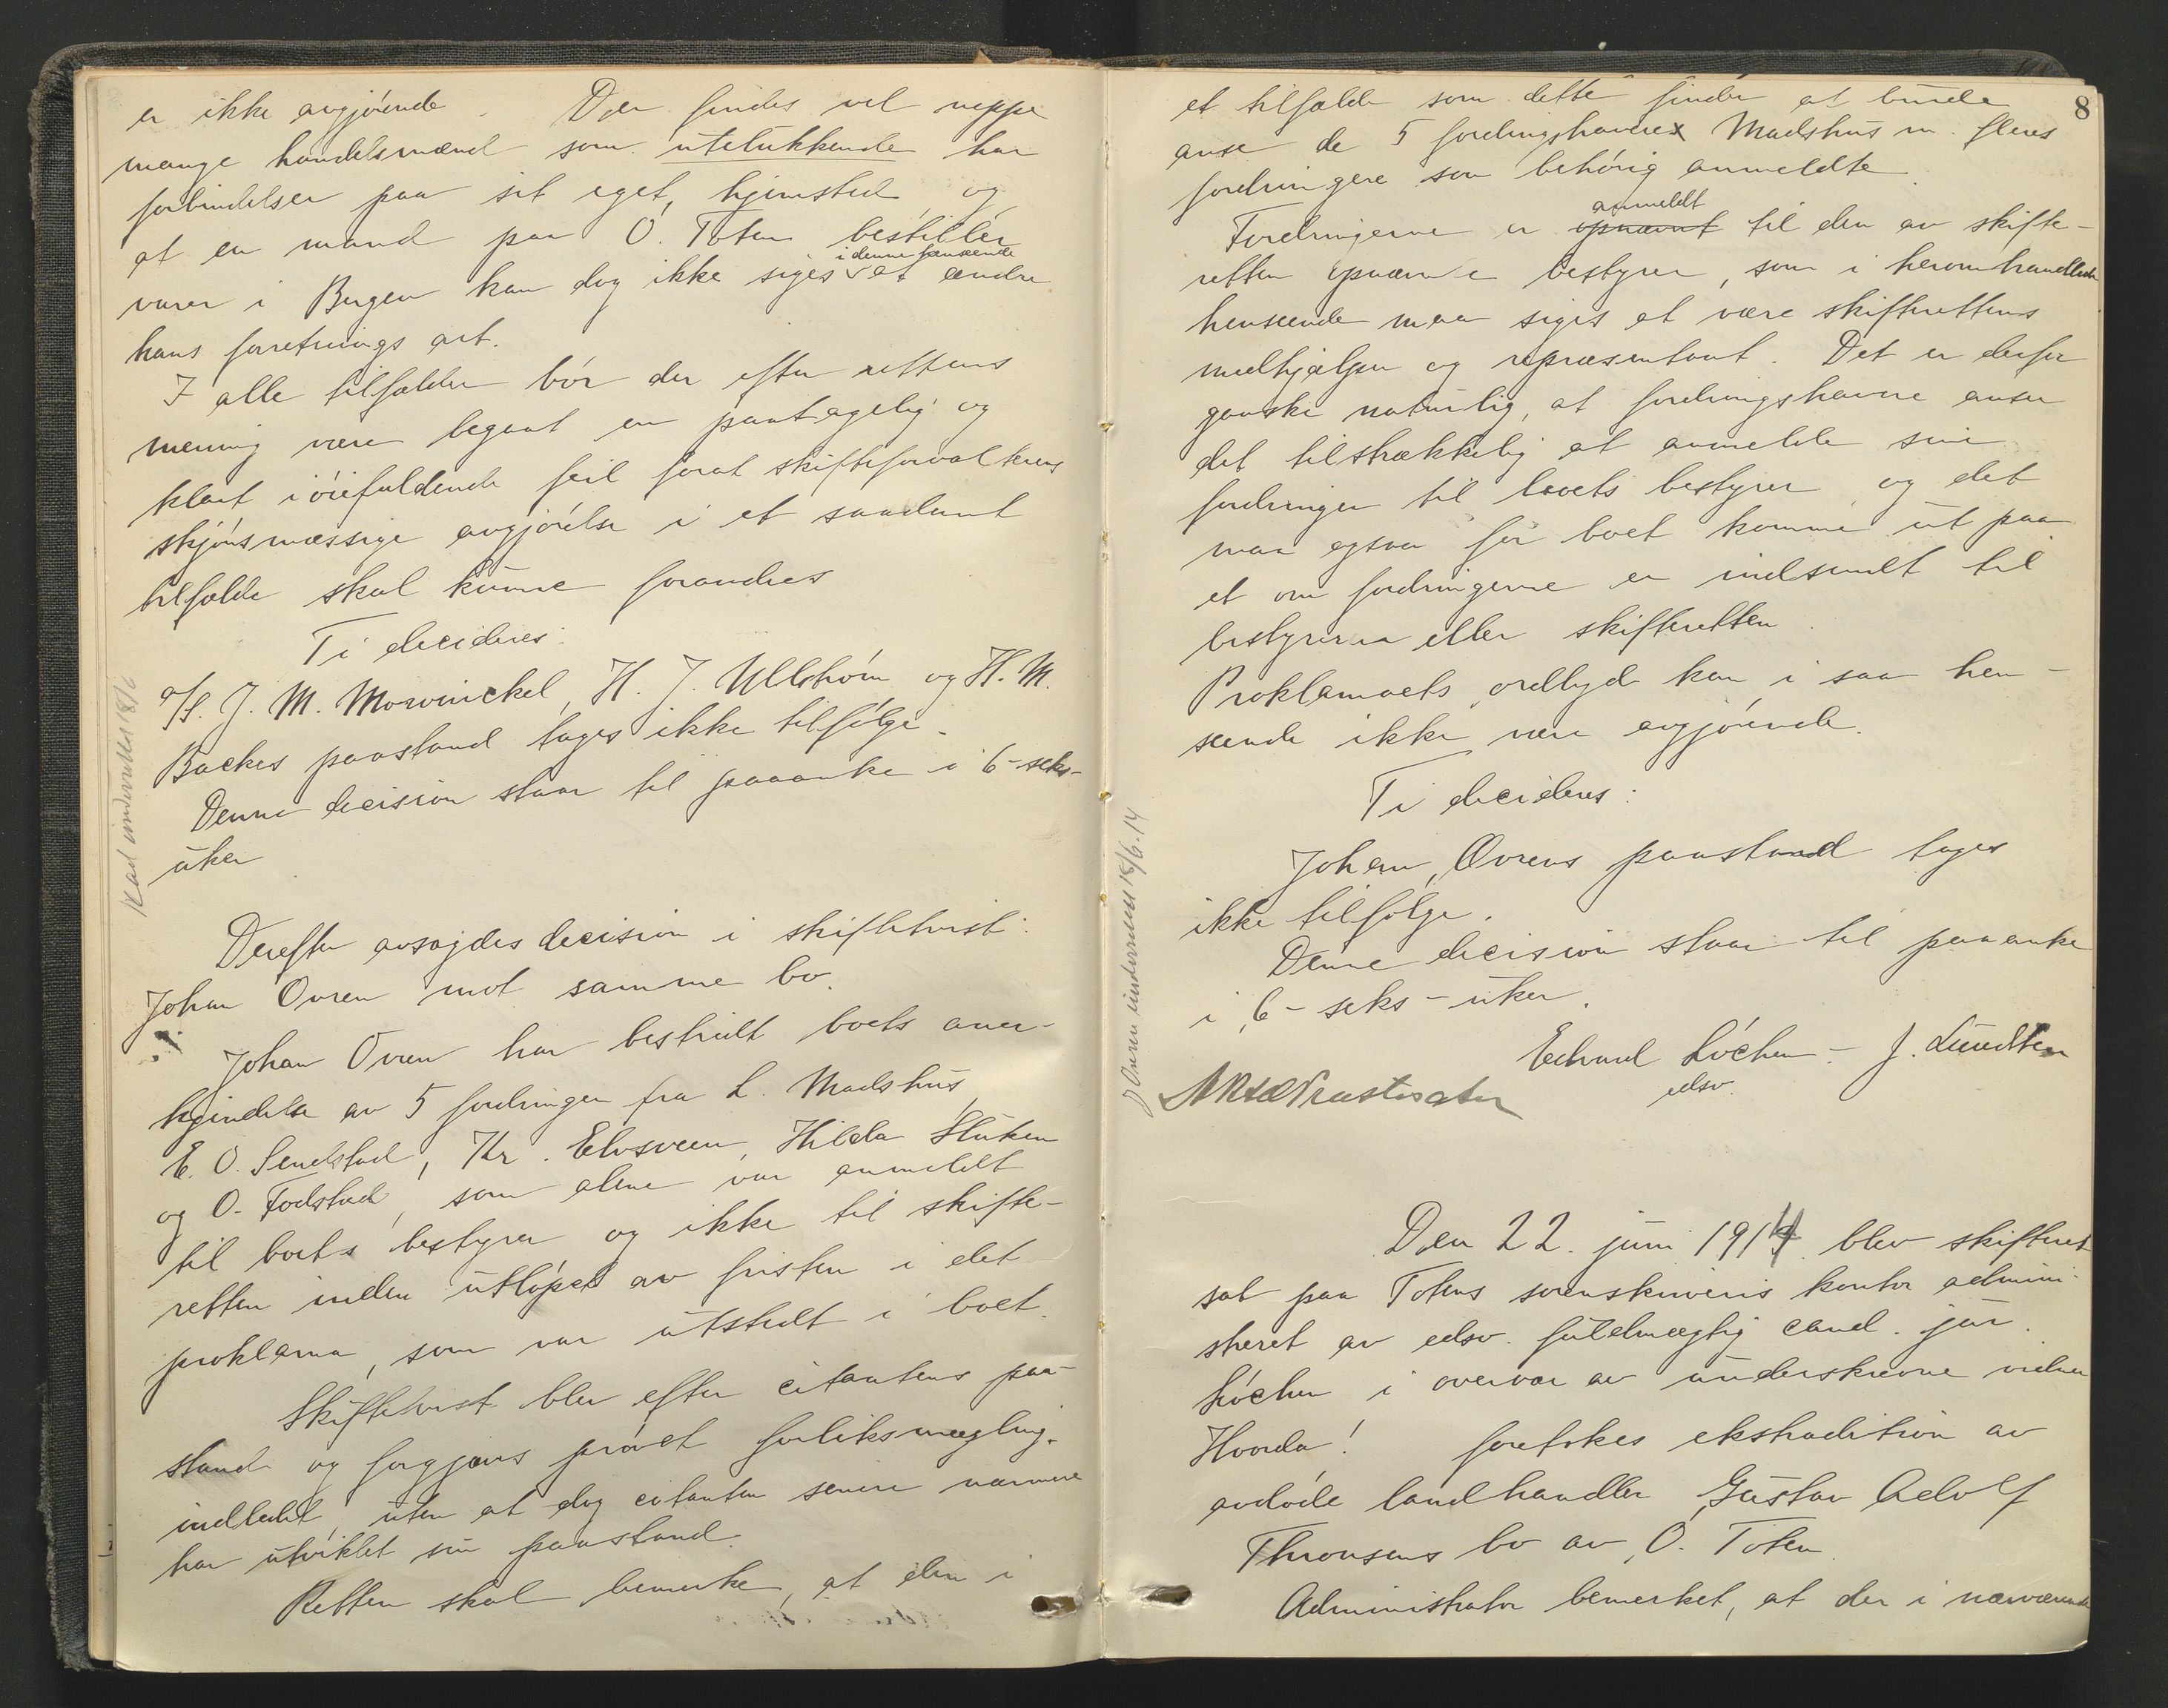 er ikke avgjørende. Der findes vel neppe
mange handelsmænd som utelukkende har
forbindelser paa sit eget hjemsted, og
at en mand paa Ø. Toten bestiller
i denne henseende
varer i Bergen kan dog ikke siges at ændre
hans forretnings art.
I alle tilfælder bør der efter rettens
mening være begaat en paatagelig og
klart iøiefaldende feil forat skifteforvalterens
skjønsmæssige avgjørelse i et saadant
tilfælde skal kunne forandres
Ti decideres:
A/S. J. M. Mowinckel, H. J. Ullstrøm og H. M.
Backes paastand tages ikke tilfølge.
Denne decision staar til paaanke i 6-seks-
uker
Derefter avsagdes decision i skiftetvist:
Johan Øvren mot samme bo.
Johan Øvren har bestridt boets aner-
kjendelse av 5 fordringer fra L. Madshus,
E. O. Sendstad, Kr. Elvsveen, Hilda Sluken
og O. Fodstad, som alene var anmeldt
til boets bestyrer og ikke til skifte-
retten inden utløpet av fristen i det
proklama, som var utstedt i boet.
Skiftetvist blev efter citantens paa-
stand og forgjæves prøvet forliksmægling
indledet, uten at dog citanten senere nærmere
har utviklet sin paastand.
Retten skal bemerke, at den i
8
et tilfælde som dette finder at burde
anse de 5 fordringshavere Madshus m. fleres
fordringer som behørig anmeldte.
anmeldt
Fordringerne er opnævnt til den av skifte-
retten opnævnte bestyrer, som i heromhandlede
henseende maa siges at være skifterettens
medhjælper og repræsentant. Det er derfor
ganske naturlig, at fordringshavere anser
det tilstrækkelig at anmelde sine
fordringer til boets bestyrer og det
maa ogsaa for boet komme ut paa
et om fordringerne er indsendt til
bestyreren eller skifteretten.
Proklamaets ordlyd kan i saa hen-
seende ikke være avgjørende.
Ti decideres:
Johan Øvrens paastand tages
ikke tilfølge.
Denne decision staar til paaanke
i 6-seks-uker.
Edvard Løchen - J. Lundsten
edsv.
Den 22. juni 1914 blev skifteret
sat paa Totens sorenskriveris kontor admini-
streret av edsv. fuldmægtig cand. jur.
Løchen i overvær av underskrevne vidner
Hvorda! foretokes ekstradition av
avdøde landhandler Gustav Adolf
Thronsens bo av Ø. Toten.
Administrator bemerket, at der i nærværende